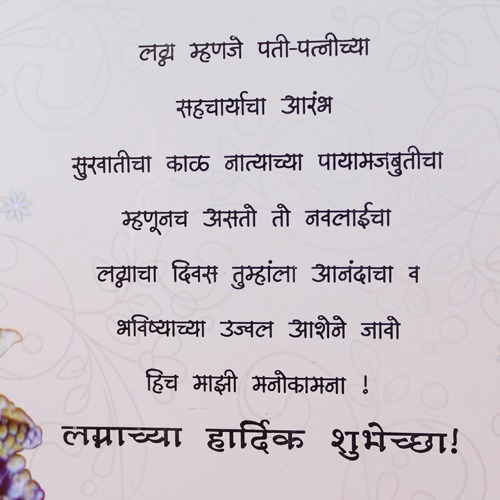 लग्न म्हणजे पती-पत्नीच्या
सहचार्याचा आरंभ
सुरवातीचा काळ नात्याच्या पायामजबुतीचा
म्हणूनच असतो तो नवलाईचा
लग्नाचा दिवस तुम्हांला आनंदाचा व
भविष्याच्या उज्वल आशेने जावो
हिच माझी मनोकामना !
लग्नाच्या हार्दिक शुभेच्छा!